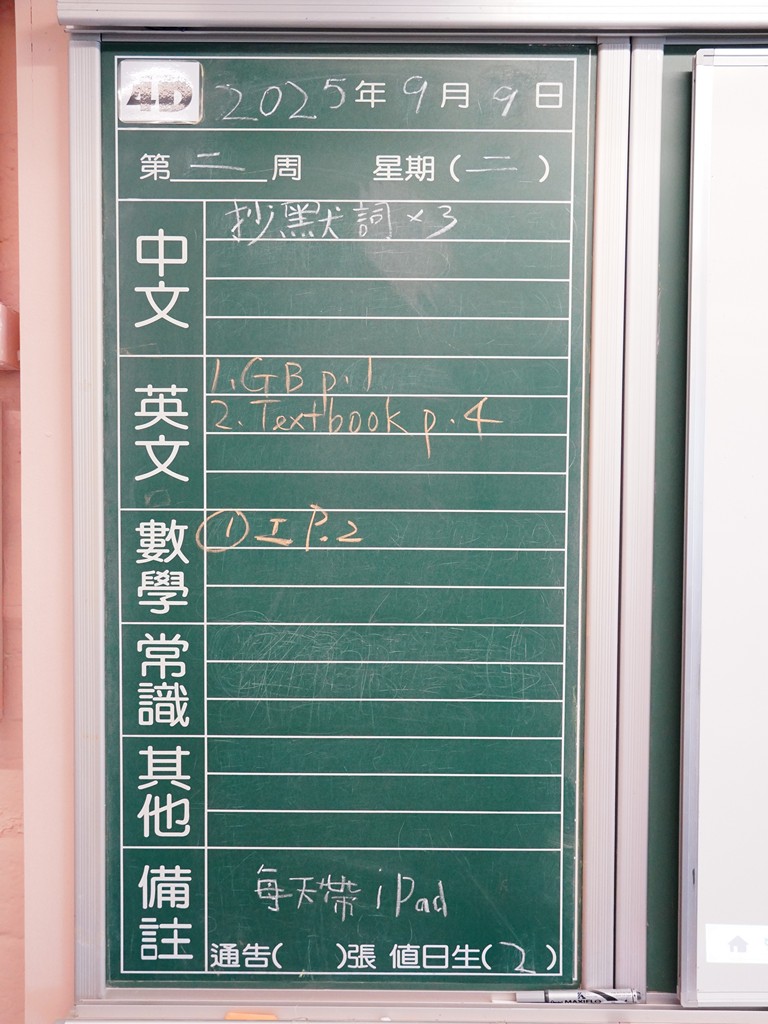 4D 2025年9月9日
第二周 星期(二)
中文 抄默詞×3
英文 1. GB p.1
2. Textbook p.4
數學 ① 工 P.2
常識
其他
備註 每天帶 iPad
通告( )張 值日生(2)
MAXIFLO